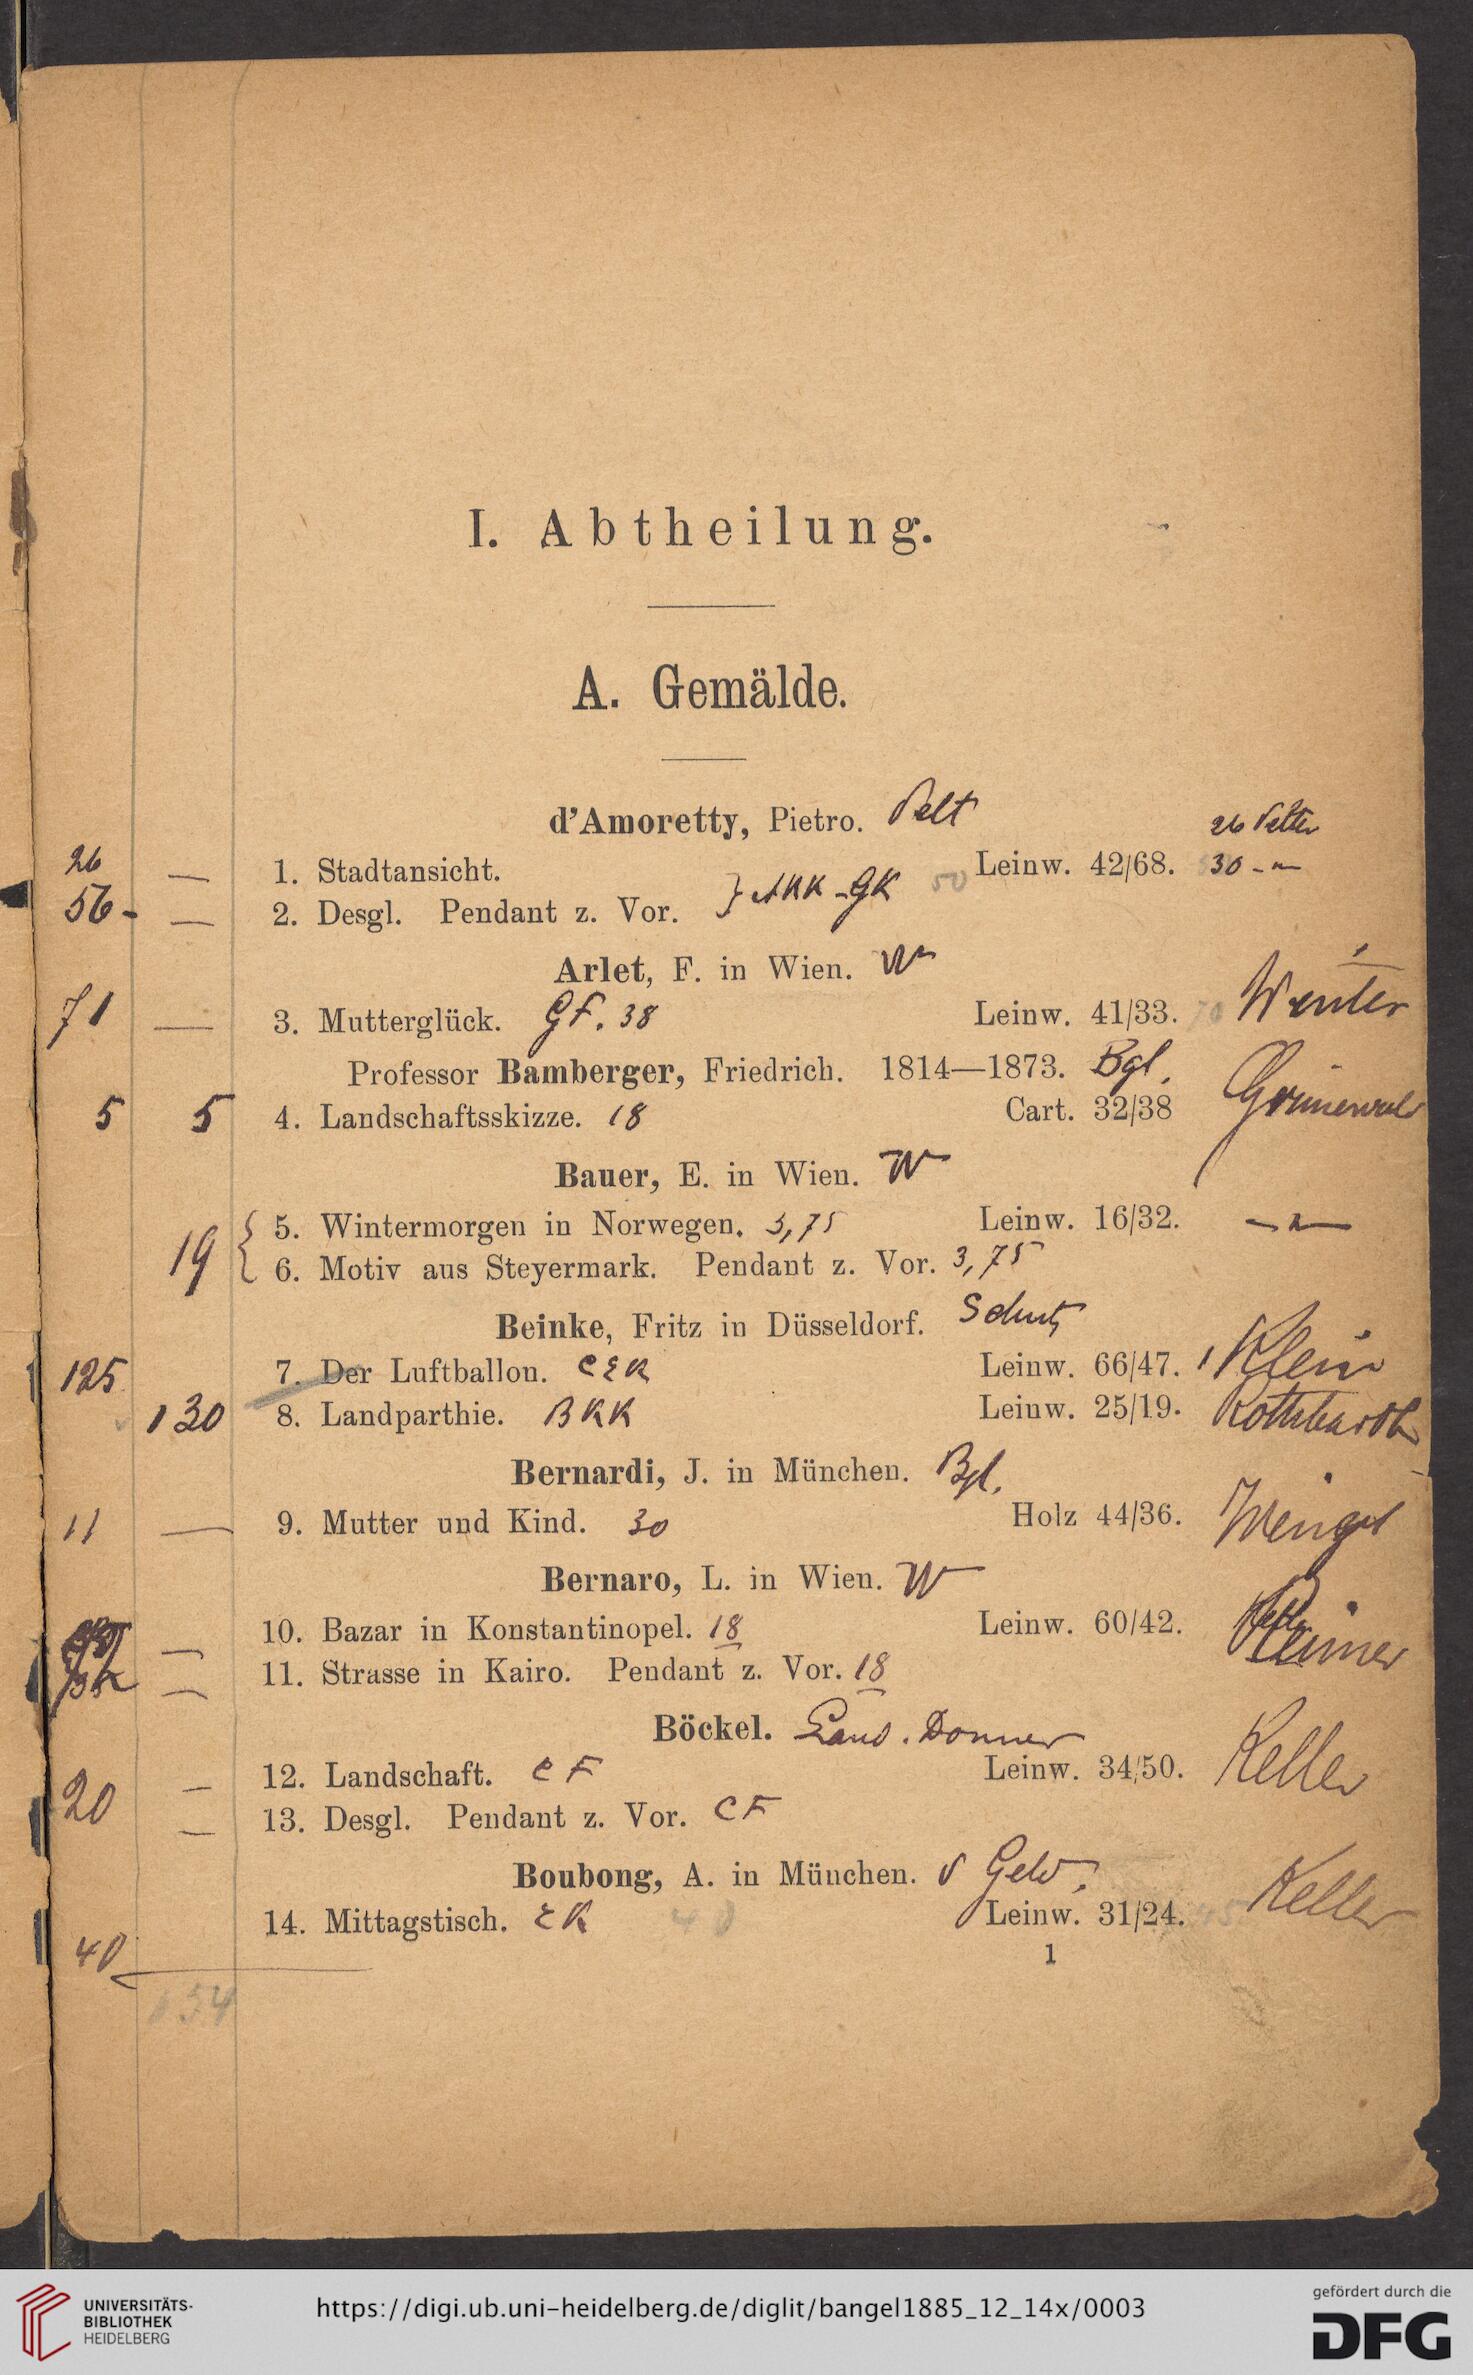 I. Abtheilung.
A. Gemälde.
d'Amoretty, Pietro. Pelt
26 Pelter
26 — 1. Stadtansicht. Leinw. 42/68. 30 - "
56 - — 2. Desgl. Pendant z. Vor. } AKK - GK 50
Arlet, F. in Wien. W
71 — 3. Mutterglück. GF. 38 Leinw. 41/33. 70 Winter
Professor Bamberger, Friedrich. 1814—1873. Bgl.
5 5 4. Landschaftsskizze. 18 Cart. 32/38 Grünewald
Bauer, E. in Wien. W
19 { 5. Wintermorgen in Norwegen. 3,75 Leinw. 16/32. — " —
6. Motiv aus Steyermark. Pendant z. Vor. 3,75
Beinke, Fritz in Düsseldorf.
125 7. Der Luftballon. CEK Leinw. 66/47. Klein
130 8. Landparthie. BKK Leinw. 25/19. Rothbarth
Bernardi, J. in München. Bgl.
11 — 9. Mutter und Kind. 30 Holz 44/36.
Bernaro, L. in Wien. W
— 10. Bazar in Konstantinopel. 18 Leinw. 60/42.
— 11. Strasse in Kairo. Pendant z. Vor. 18
Böckel. Donner
— 12. Landschaft. CF Leinw. 34/50. Keller
20 — 13. Desgl. Pendant z. Vor. CF
Boubong, A. in München. Geld.
14. Mittagstisch. EK 40 Leinw. 31/24. 45 Keller
40
1
134
UNIVERSITÄTS-
BIBLIOTHEK
HEIDELBERG
https://digi.ub.uni-heidelberg.de/diglit/bangel1885_12_14x/0003
gefördert durch die
DFG